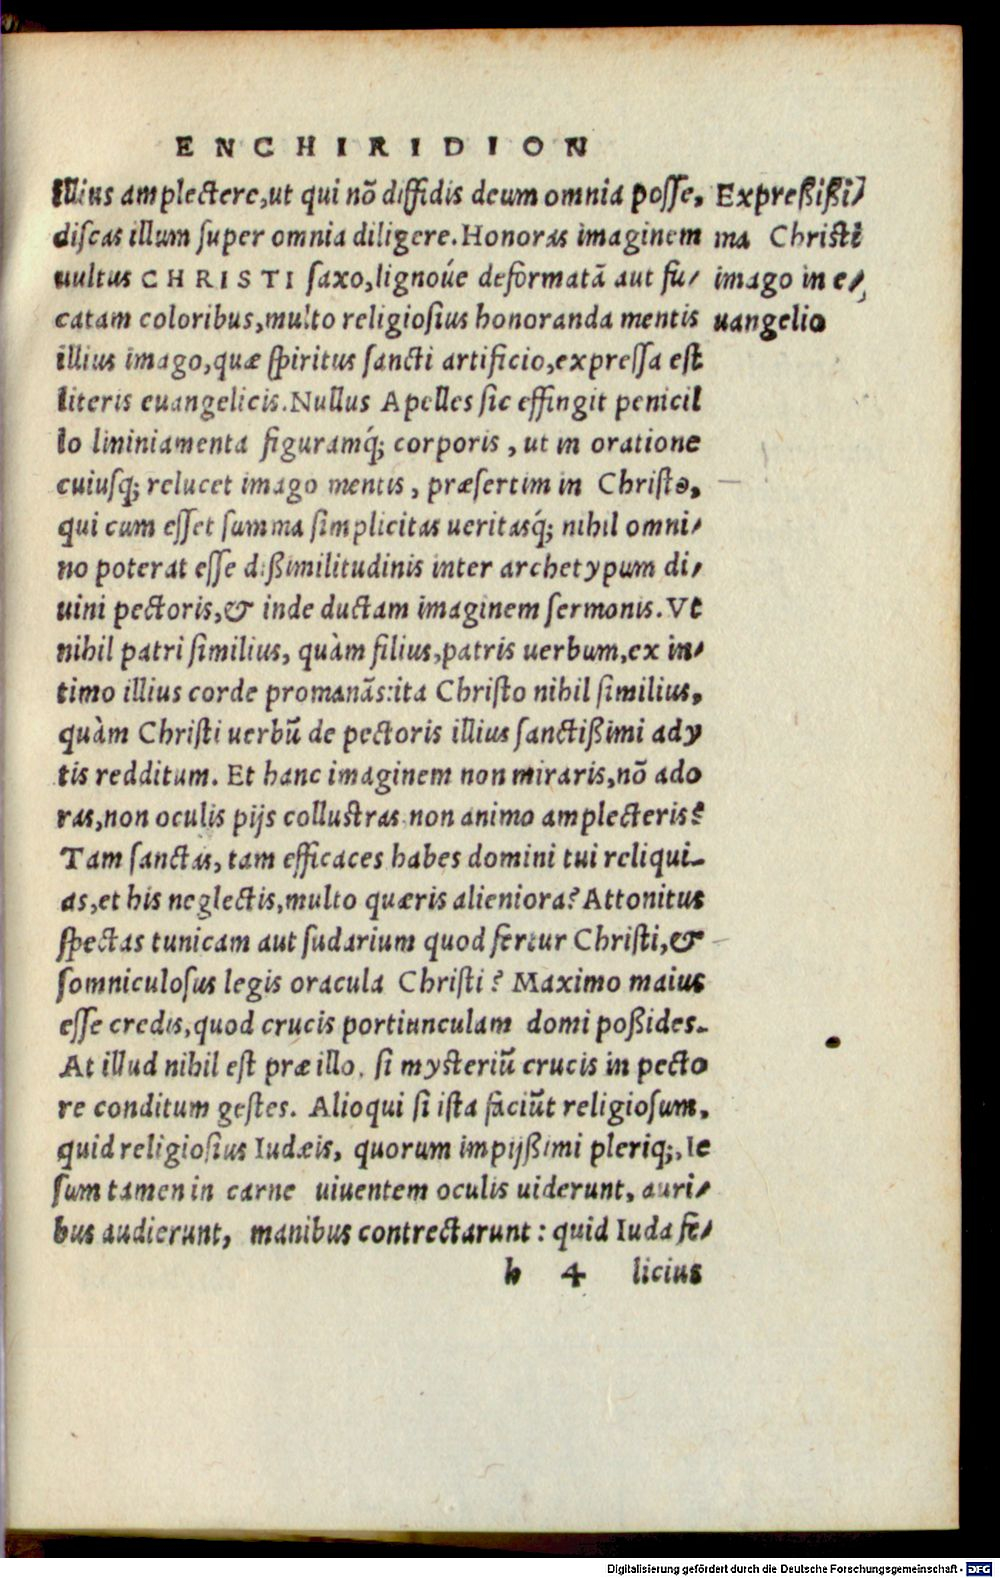 ENCHIRIDION
illius amplectere,ut qui nõ diffidis deum omnia posse,
discas illum super omnia diligere.Honoras imaginem
uultus CHRISTI saxo,lignoúe deformatã aut fu/
catam coloribus,multo religiosius honoranda mentis
illius imago,quæ spiritus sancti artificio,expressa est
literis euangelicis.Nullus Apelles sic effingit penicil
lo lininiamenta figuramq́; corporis , ut in oratione
cuiusq; relucet imago mentis , præsertim in Christo,
qui cum esset summa simplicitas ueritasq́; nihil omni/
no poterat esse dißimilitudinis inter archetypum di/
uini pectoris,& inde ductam imaginem sermonis. Vt
nihil patri similius, quàm filius,patris uerbum,ex in/
timo illius corde promanãs:ita Christo nihil similius,
quàm Christi uerbũ de pectoris illius sanctißimi ady
tis redditum. Et hanc imaginem non miraris,nõ ado
ras,non oculis pijs collustras non animo amplecteris?
Tam sanctas, tam efficaces habes domini tui reliqui-
as,et his neglectis,multo quæris alieniora? Attonitus
spectas tunicam aut sudarium quod fertur Christi,&
somniculosus legis oracula Christi? Maximo maius
esse credis,quod crucis portiunculam domi poßides.
At illud nihil est præ illo, si mysteriũ crucis in pecto
re conditum gestes. Alioqui si ista faciũt religiosum,
quid religiosius Iudæis, quorum impijßimi pleriq;, Ie
sum tamen in carne uiuentem oculis uiderunt, auri/
bus audierunt, manibus contrectarunt : quid Iuda fe/
b 4 licius
Expreßißi/
ma Christi
imago in e/
uangelio
Digitalisierung gefördert durch die Deutsche Forschungsgemeinschaft - DFG